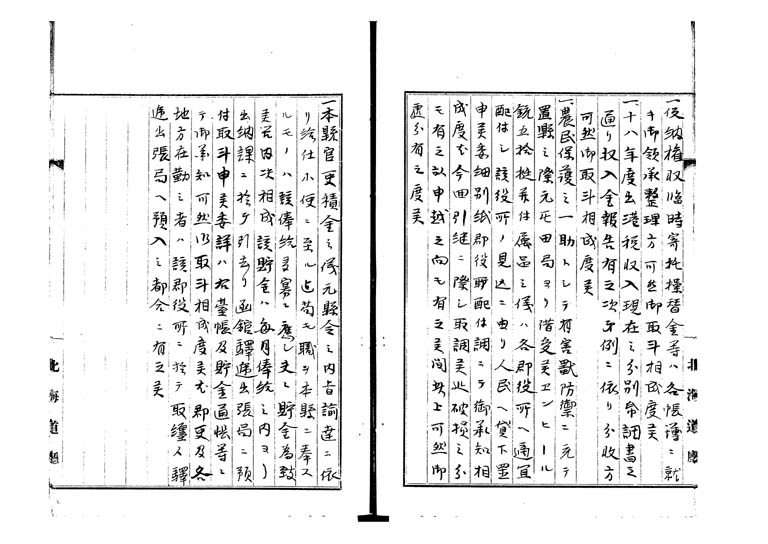 一仮納権収臨時寄托操替金等ハ各帳簿ニ就
キ御領承整理方可然御取斗相成度候
一十八年度出港税収入現在之分別冊調書之
通り収入金報告有之次才例ニ依リ分収方
可然御取斗相成度候
一農民保護之一助トシテ有害獣防禦ニ元テ
置縣之際元屯田局ヨリ借受候ヱンヒール
銃五拾挺并付属品之儀ハ各郡役所ヘ適宜
配付シ該役所ノ見込ニ由リ人民ヘ貸下置
申候委細別紙郡役所配付調ニテ御承知相
成度尤今回引継ニ際シ取調候処破損之分
モ有之候以申越之向モ有之候間此上可然御
處分有之度候
一本縣官吏積金之儀元縣令之内旨諭達ニ依
リ給仕小使ニ至ル迄苟モ職ヲ本縣ニ奉ス
ルモノハ該俸給多寡ニ應シ夫々貯金為致
候共内次相成該貯金ハ毎月俸給之内ヨリ
出納課ニ於テ引去リ函館驛逓出張局ニ預
付取斗申候委詳ハ右臺帳及貯金通帳等ニ
テ御承知可然御取斗相成度候尤郡吏及各
地方在勤之者ハ該郡役所ニ於テ取纏メ驛
逓出張局ヘ預入之都合ニ有之候
北海道廳
北海道廳